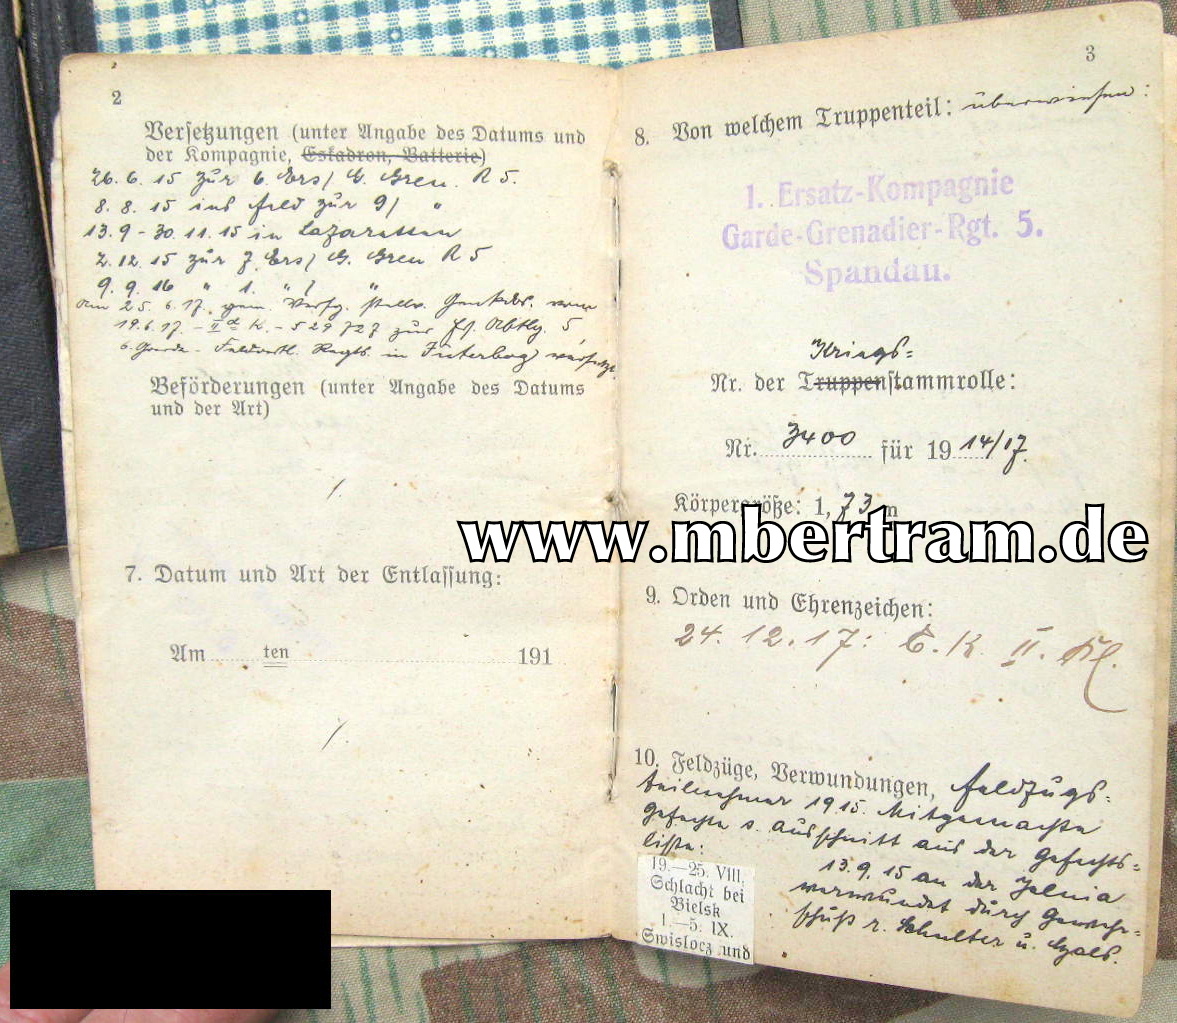 2
Versetzungen (unter Angabe des Datums und
der Kompagnie, Eskadron, Batterie)
26. 6. 15 zür 6. Ers/ G. Gren. R 5.
8. 8. 15 ins Feld zür 9/ "
13. 9 - 30. 11. 15 in Lazaretten
2. 12. 15 zür 7. Ers/ G. Gren R 5
9. 9. 16 " 1. " / "
Am 25. 6. 17. gem. Verfg. stellv. vom
19. 6. 17. - II d K. - 529 727 zur Abtlg. 5,
6. Garde - Regts. in Jüterbog versetzt.
Beförderungen (unter Angabe des Datums
und der Art)
7. Datum und Art der Entlassung:
Am ten 191
3
8. Von welchem Truppenteil: überwiesen:
1. Ersatz-Kompagnie
Garde-Grenadier-Rgt. 5.
Spandau.
Kriegs=
Nr. der Truppenstammrolle:
Nr. 3400 für 19 14/17.
Körpergröße: 1,73 m
www.mbertram.de
9. Orden und Ehrenzeichen:
24. 12. 17: E. K. II. Kl.
10. Feldzüge, Verwundungen, Feldzugs=
teilnehmer 1915. Mitgemachte
Gefechte s. Ausschnitt aus der Gefechts=
liste:
19.—25. VIII.
Schlacht bei
Bielsk
1.—5. IX.
Swislocz und
13. 9. 15 an der Zelwia
verwundet durch Gewehr=
schuß r. Schulter u. Hals.